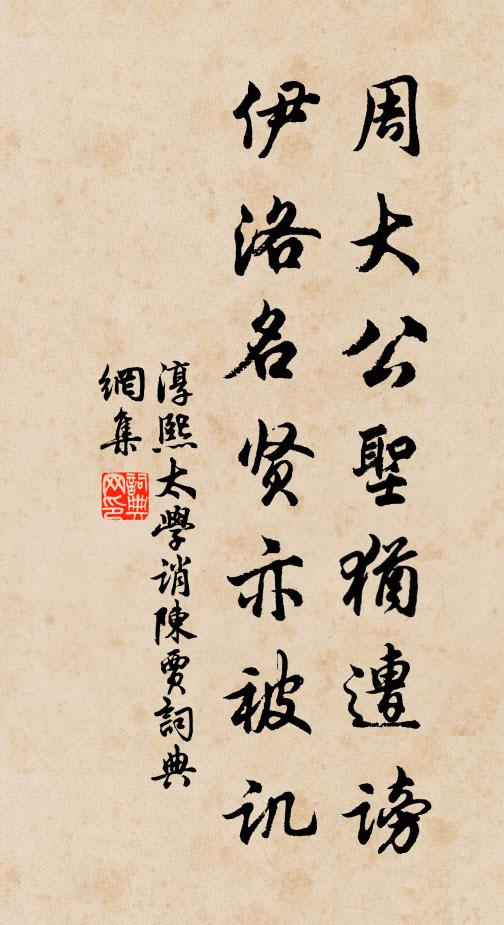 周大公聖猶遭謗
伊洛名贤亦被讥
淳熙太學誚陳賈詞典
網集
詞典
网印